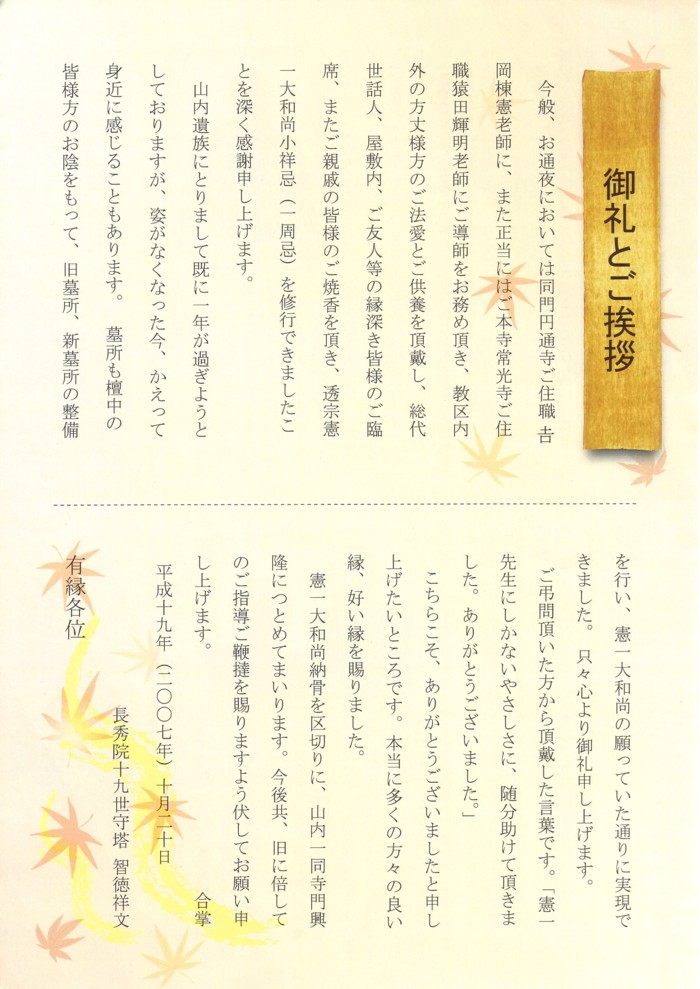 御礼とご挨拶
　今般、お通夜においては同門円通寺ご住職 𠮷
岡棟憲老師に、また正当にはご本寺常光寺ご住
職猿田輝明老師にご導師をお務め頂き、教区内
外の方丈様方のご法愛とご供養を頂戴し、総代
世話人、屋敷内、ご友人等の縁深き皆様のご臨
席、またご親戚の皆様のご焼香を頂き、透宗憲
一大和尚小祥忌（一周忌）を修行できましたこ
とを深く感謝申し上げます。
　山内遺族にとりまして既に一年が過ぎようと
しておりますが、姿がなくなった今、かえって
身近に感じることもあります。　墓所も檀中の
皆様方のお陰をもって、旧墓所、新墓所の整備
を行い、憲一大和尚の願っていた通りに実現で
きました。　只々心より御礼申し上げます。
　ご弔問頂いた方から頂戴した言葉です。「憲一
先生にしかないやさしさに、随分助けて頂きま
した。ありがとうございました。」
　こちらこそ、ありがとうございましたと申し
上げたいところです。本当に多くの方々の良い
縁、好い縁を賜りました。
　憲一大和尚納骨を区切りに、山内一同寺門興
隆につとめてまいります。今後共、旧に倍して
のご指導ご鞭撻を賜りますよう伏してお願い申
し上げます。　　　　　　　　　　　合掌
平成十九年（二〇〇七年）十月二十日
長秀院十九世守塔 智徳祥文
有縁各位